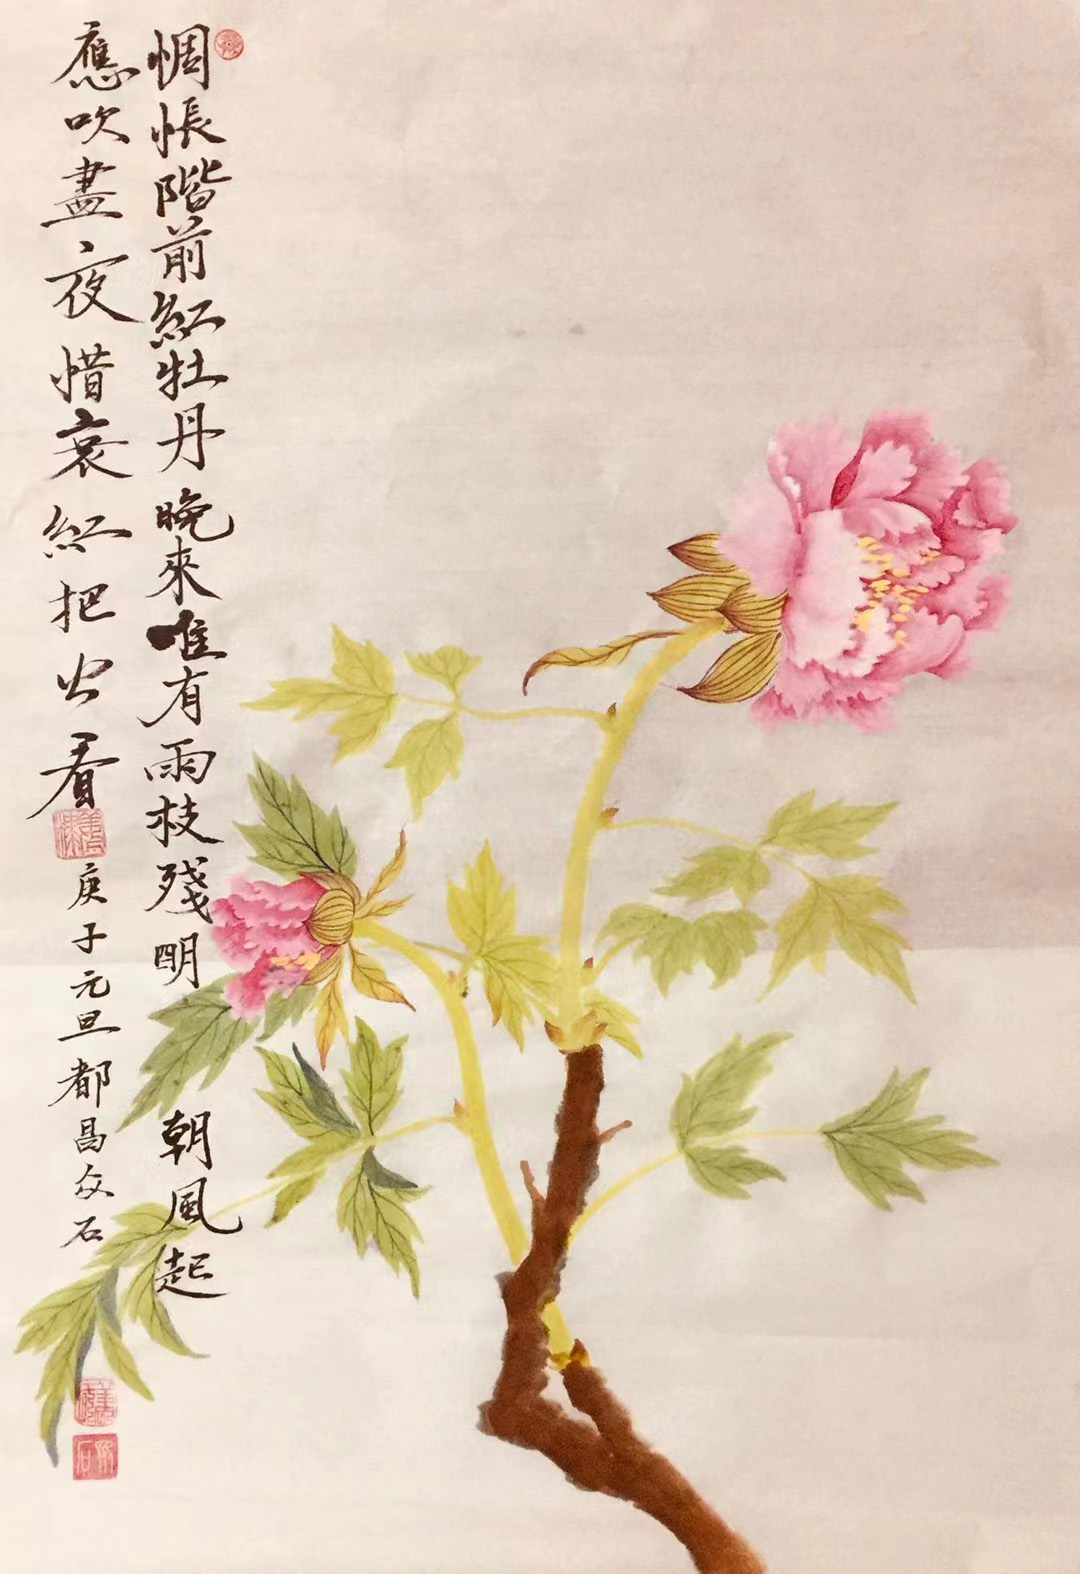 惆悵階前紅牡丹晚來唯有雨枝殘明朝風起
應吹盡夜惜衰紅把火看
庚子元旦都昌众石